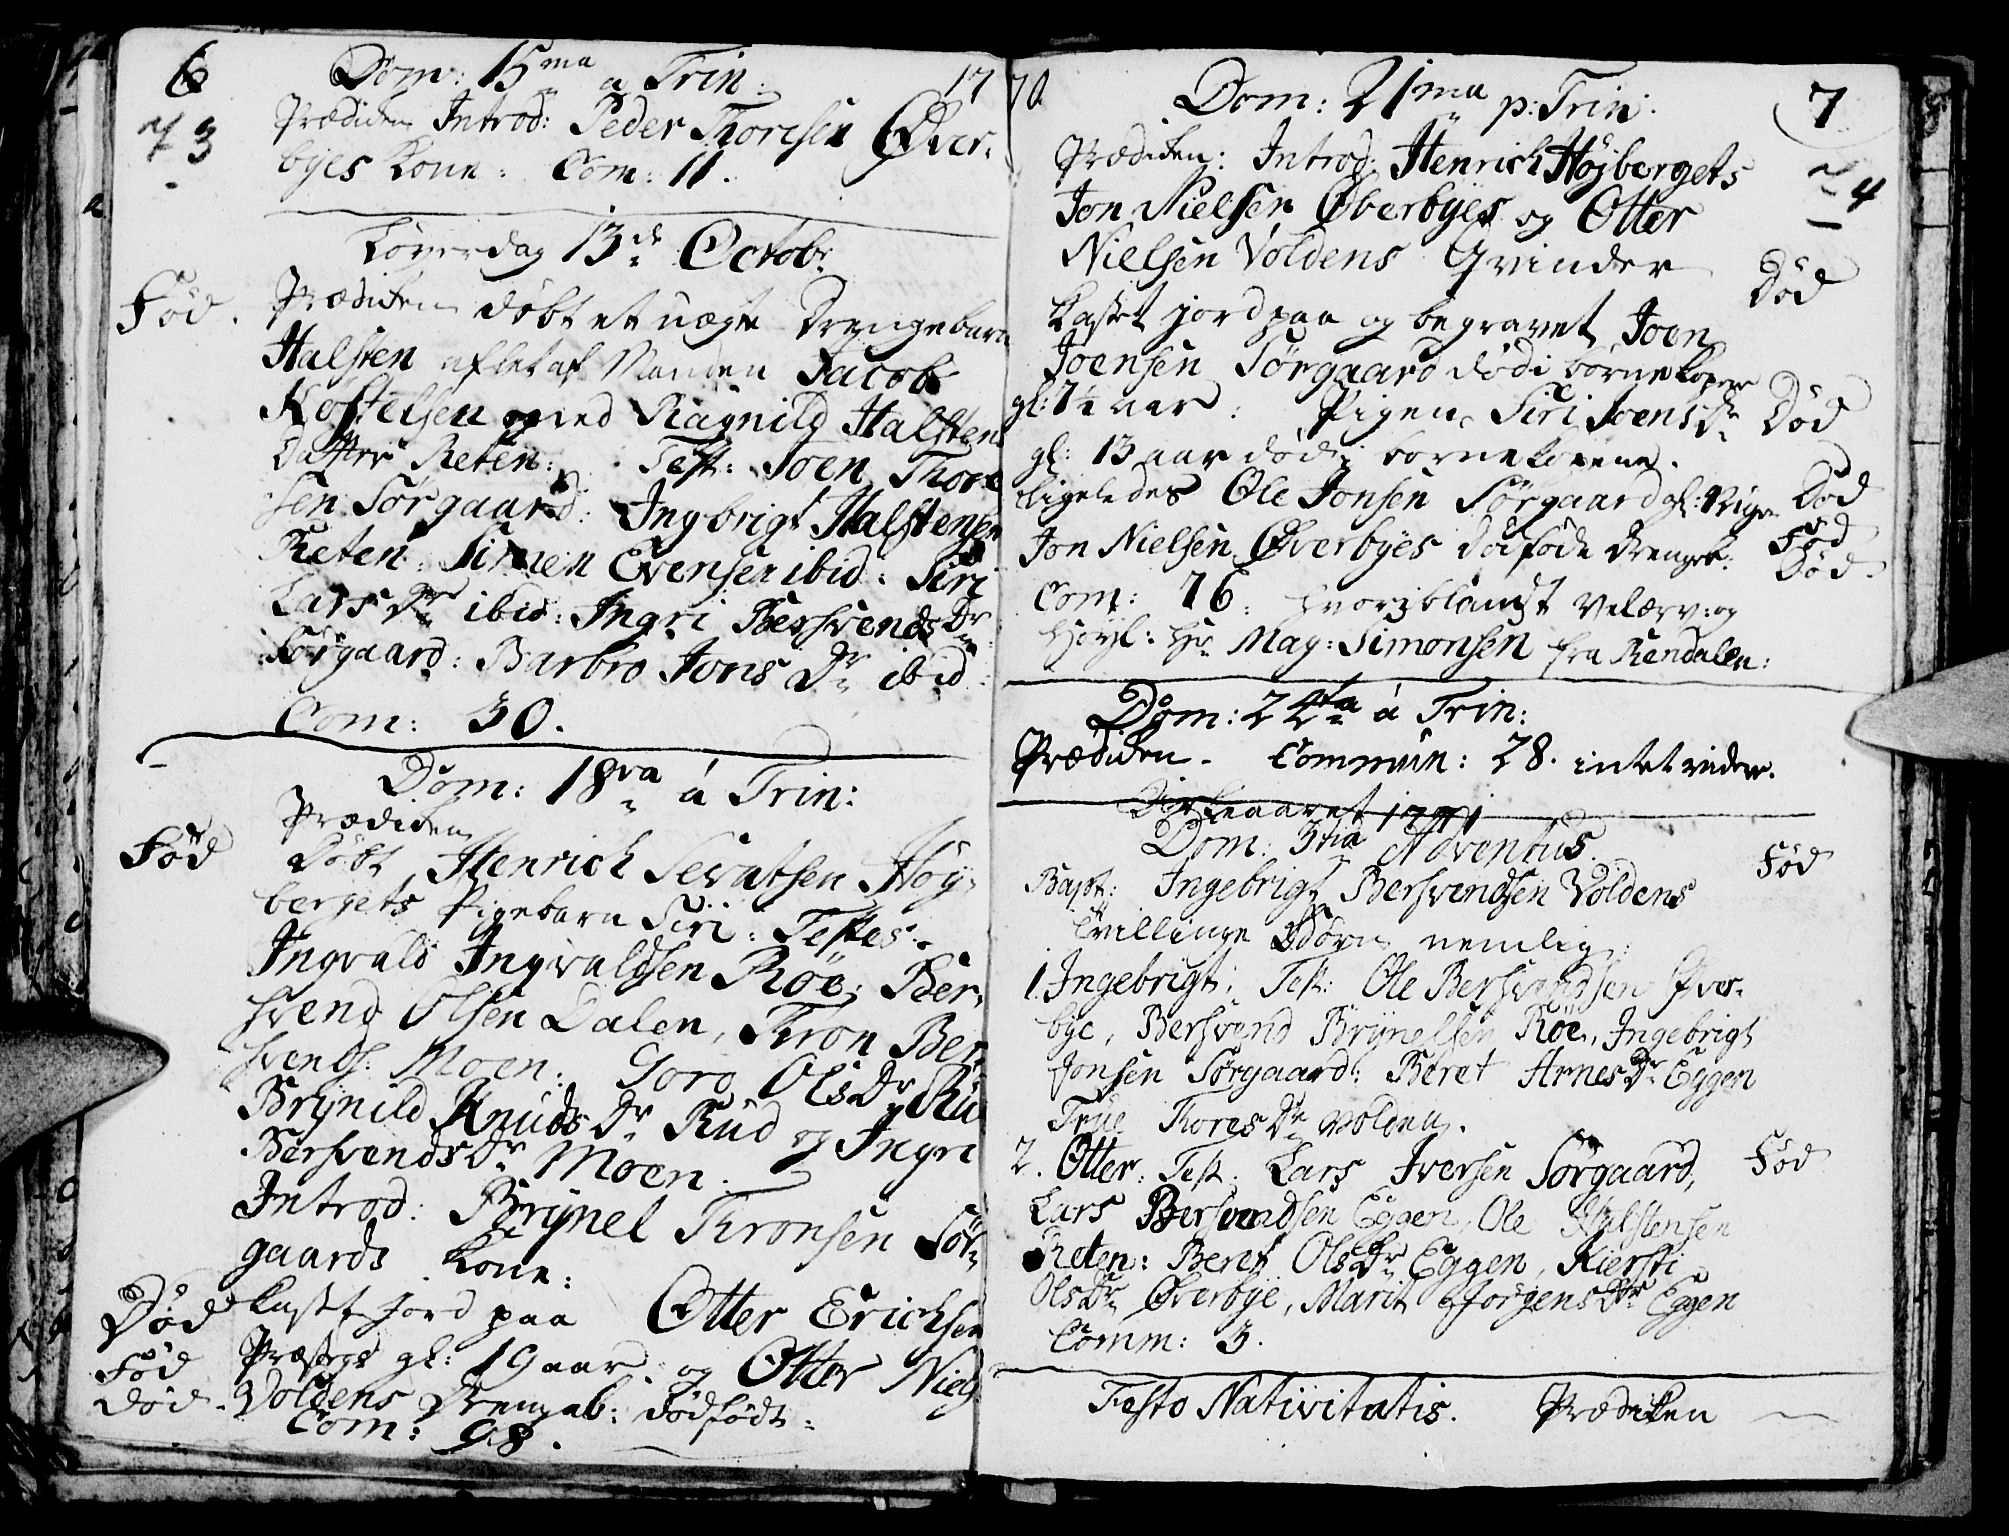 6
Dom: 15ma a Trin:
17
73
Prædiken Introd: Peder Thoresen Øver-
byes Kone: Com: 11.
Løverdag 13de Octobr:
Fød.
Prædiken døbt et uægte Drengebarn
Halsten aflet af Manden Jacob
med Ragnild Halstens
Datter Reten: Test: Joen Thore
sen Sørgaard: Ingbrigt Halstensen
Reten: Simen Evensen ibid: Siri
Lars Dr ibid: Ingri Bersvends Dr
Sørgaard: Barbro Jons Dr ibid:
Com: 30.
Dom: 18va á Trin:
Prædiken
Fød
Døbt Henrich Sevatsen Høy-
bergets Pigebarn Siri: Testes.
Ingvald Ingvaldsen Röe; Ber-
svend Olsen Dalen, Thron Ber-
svends: Moen: Goro Ols Dr Ru
Brÿnild Knuds Dr Rud og Ingri
Bersvends Dr Moen.
Introd: Brÿnel Thronsen Sør-
gaards Kone:
Død
Kast Jord paa Otter Erichsen
Fød
Præstegs gl: 19 aar: og Otter Niels
Død.
Voldens Drengeb: dødfødt:
Com: 98.
70.
Dom: 21ma p: Trin:
7
Prædiken: Introd: Henrich Højbergets
4
Jon Nielsen Øverbyes og Otter
Nielsen Voldens Qvinder
Død
Kastet jord paa og begravet Joen
Joensen Sørgaard død i børnekoper
gl: 7½ aar: Pigen Siri Joens Dr
Død
gl: 13 aar død i børnekopene.
ligeledes Ole Jonsen Sørgaard gl:
Død
Jon Nielsen Øverbyes dødføde Drengeb:
Fød
Død.
Com: 76: hvoriblandt Velærv: og
Hr Mag: Simonsen fra Rendalen:
Dom: 22da á Trin:
Prædiken. Commun: 28. intet videre.
Kirkeaaret 1771
Dom: 3tia Adventus.
Fød
Bapt: Ingebrigt Bersvendsen Voldens
Tvillinge Børn nemlig:
1. Ingebrigt: Test: Ole Bersvendsen Øver-
bye, Bersvend Brÿnelsen Röe, Ingebrigt
Jonsen Sørgaard: Beret Arnes Dr Eggen
True Thores Dr Volden.
2. Otter: Test: Lars Iversen Sørgaard,
Fød
Lars Bersvendsen Eggen, Ole Halstensen
Reten: Beret Ols Dr Eggen, Kiersti
Ols Dr Øverbye, Marit Jørgens Dr Eggen
Comm: 3.
Festo Nativitatis. Prædiken